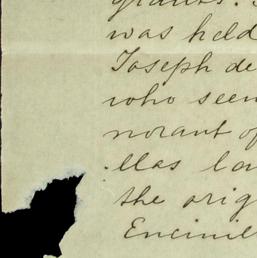 grants.
was held
Joseph de
who seem
norant of
llas la
the orig
Encinil